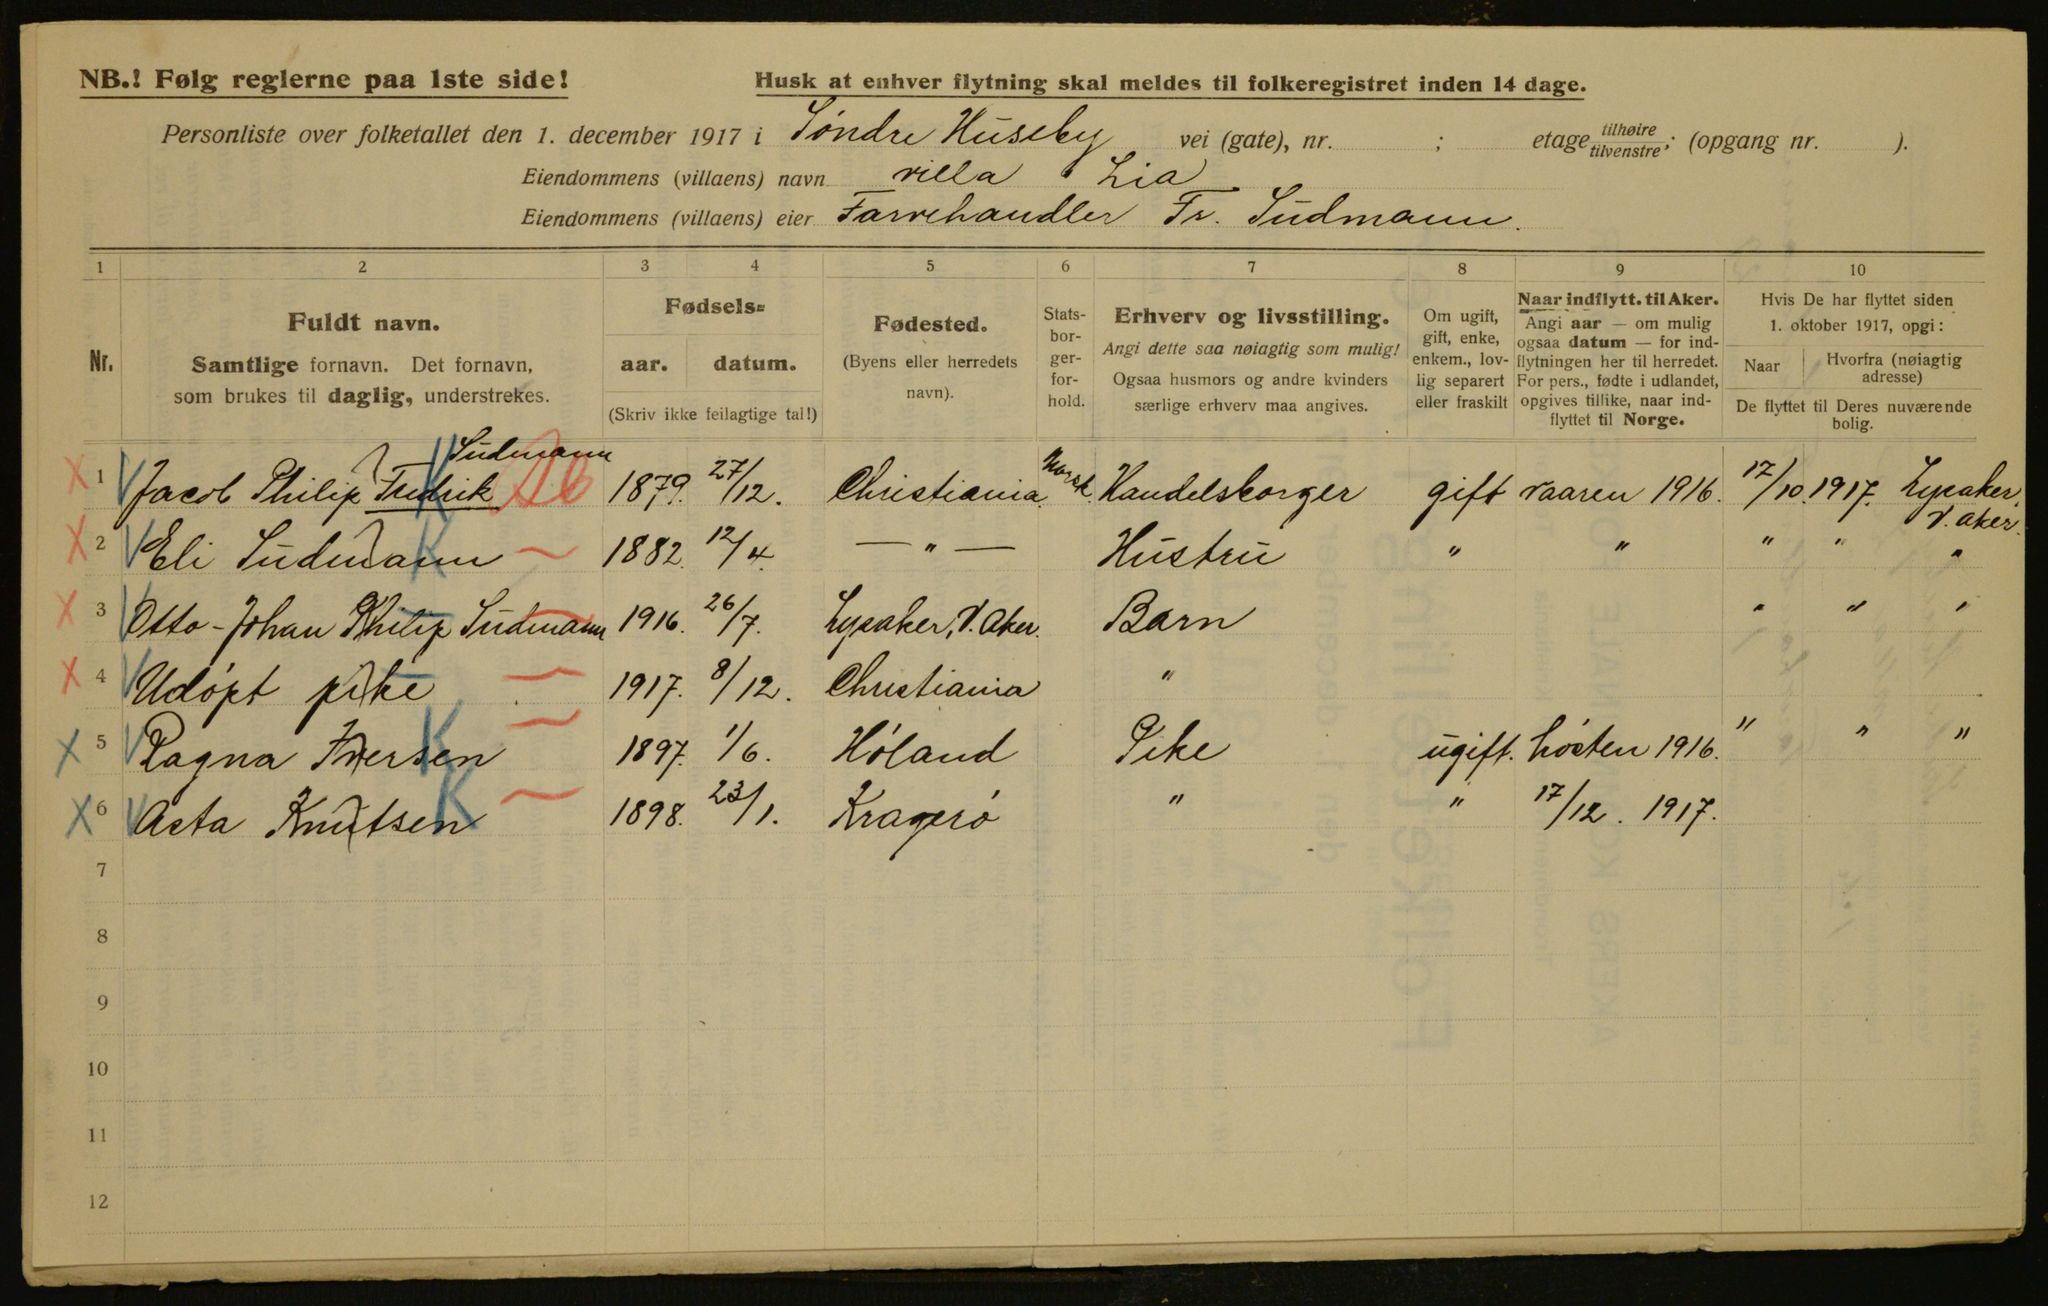 NB.! Følg reglerne paa 1ste side!
Husk at enhver flytning skal meldes til folkeregistret inden 14 dage.
Personliste over folketallet den 1. december 1917 i Söndre Huseby vei (gate), nr. ; etage tilhøire tilvenstre; (opgang nr. ).
Eiendommens (villaens) navn villa Lia
Eiendommens (villaens) eier Farvehandler Fr. Sudmann.
1 2 3 4 5 6 7 8 9 10
Nr.
Fuldt navn.
Samtlige fornavn. Det fornavn,
som brukes til daglig, understrekes.
Fødsels-
aar. datum.
(Skriv ikke feilagtige tal!)
Fødested.
(Byens eller herredets
navn).
Stats-
bor-
ger-
for-
hold.
Erhverv og livsstilling.
Angi dette saa nøiagtig som mulig!
Ogsaa husmors og andre kvinders
særlige erhverv maa angives.
Om ugift,
gift, enke,
enkem., lov-
lig separert
eller fraskilt
Naar indflytt. til Aker.
Angi aar — om mulig
ogsaa datum — for ind-
flytningen her til herredet.
For pers., fødte i udlandet,
opgives tillike, naar ind-
flyttet til Norge.
Hvis De har flyttet siden
1. oktober 1917, opgi:
Naar
Hvorfra (nøiagtig
adresse)
De flyttet til Deres nuværende
bolig.
Sudmann
1 Jacob Philip Fredrik 1879. 27/12. Christiania. Norsk. Handelsborger gift vaaren 1916. 17/10. 1917. Lysaker,
V. Aker.
2 Eli Sudmann 1882. 12/4. — " — Hustru " " " " "
3 Otto-Johan Philip Sudmann 1916. 26/7. Lysaker, V. Aker. Barn " " "
4 Udöpt pike 1917. 8/12. Christiania "
5 Ragna Iversen 1897. 1/6. Höland Pike ugift. hösten 1916. " " "
6 Asta Knutsen 1898. 23/1. Kragerö " " 17/12. 1917.
7
8
9
10
11
12